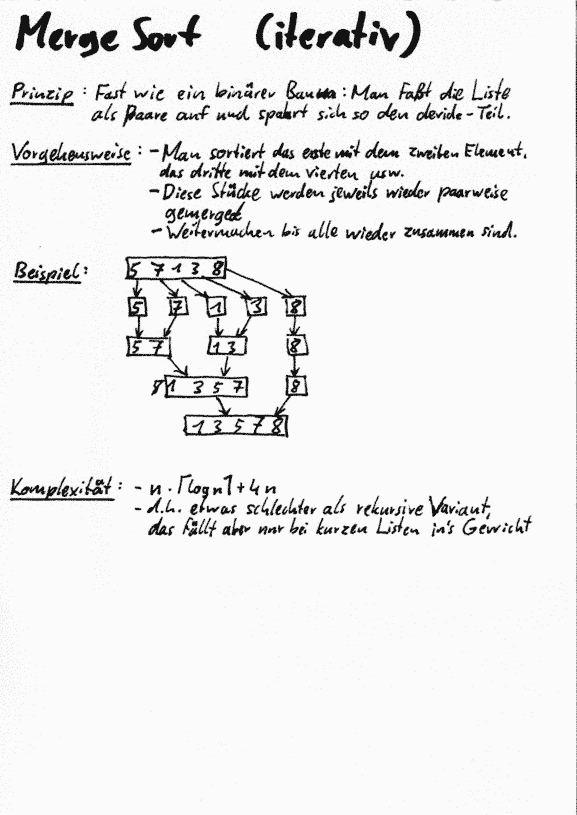 Merge Sort (iterativ)
Prinzip : Fast wie ein binärer Baum : Man faßt die Liste
als Paare auf und spahrt sich so den devide-Teil.
Vorgehensweise : - Man sortiert das erste mit dem zweiten Element,
das dritte mit dem vierten usw.
- Diese Stücke werden jeweils wieder paarweise
gemerged
- Weitermachen bis alle wieder zusammen sind.
Beispiel :
5 7 1 3 8
5 7 1 3 8
5 7 1 3 8
1 3 5 7 8
1 3 5 7 8
Komplexität : - n · ⌈log n⌉ + 4n
- d.h. etwas schlechter als rekursive Variant,
das fällt aber nur bei kurzen Listen in's Gewicht